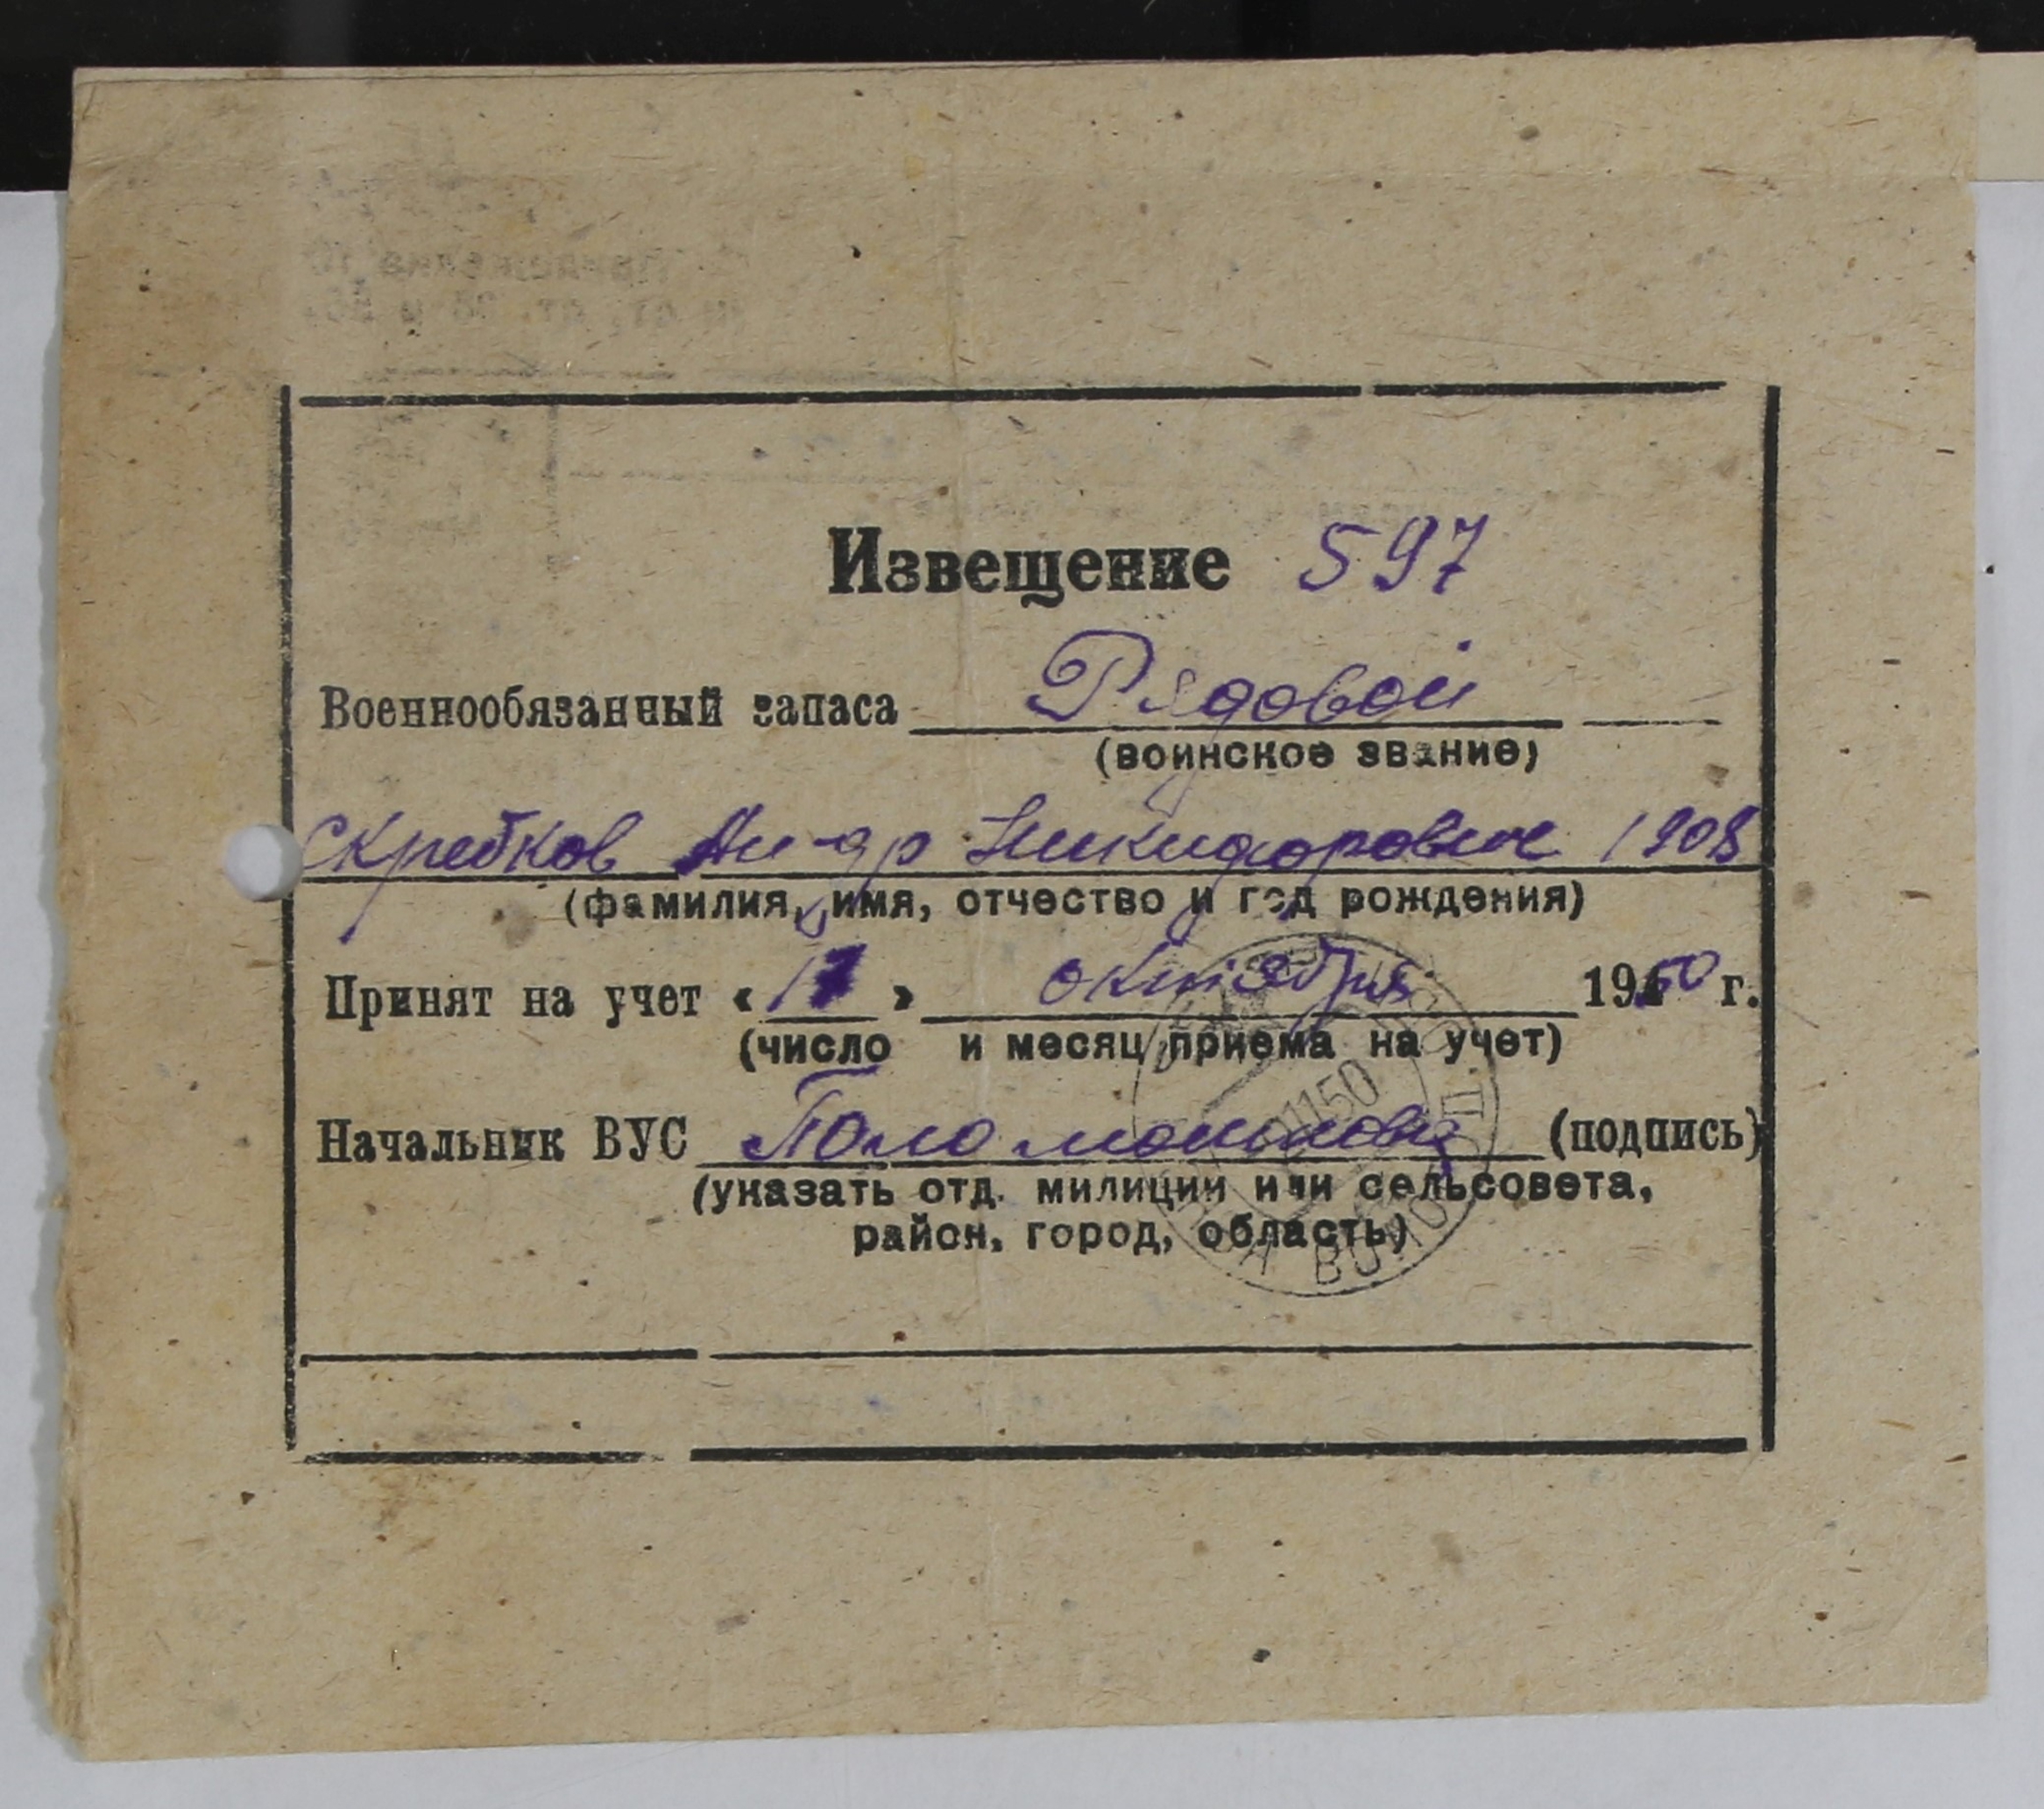 Извещение 597
Военнообязанный запаса Рядовой
(воинское звание)
Скребков Ал-др Никифорович 1908
(фамилия, имя, отчество и год рождения)
Принят на учет « 17 » октября 1950 г.
(число и месяц приема на учет)
Начальник ВУС (подпись)
(указать отд. милиции или сельсовета,
район, город, область)